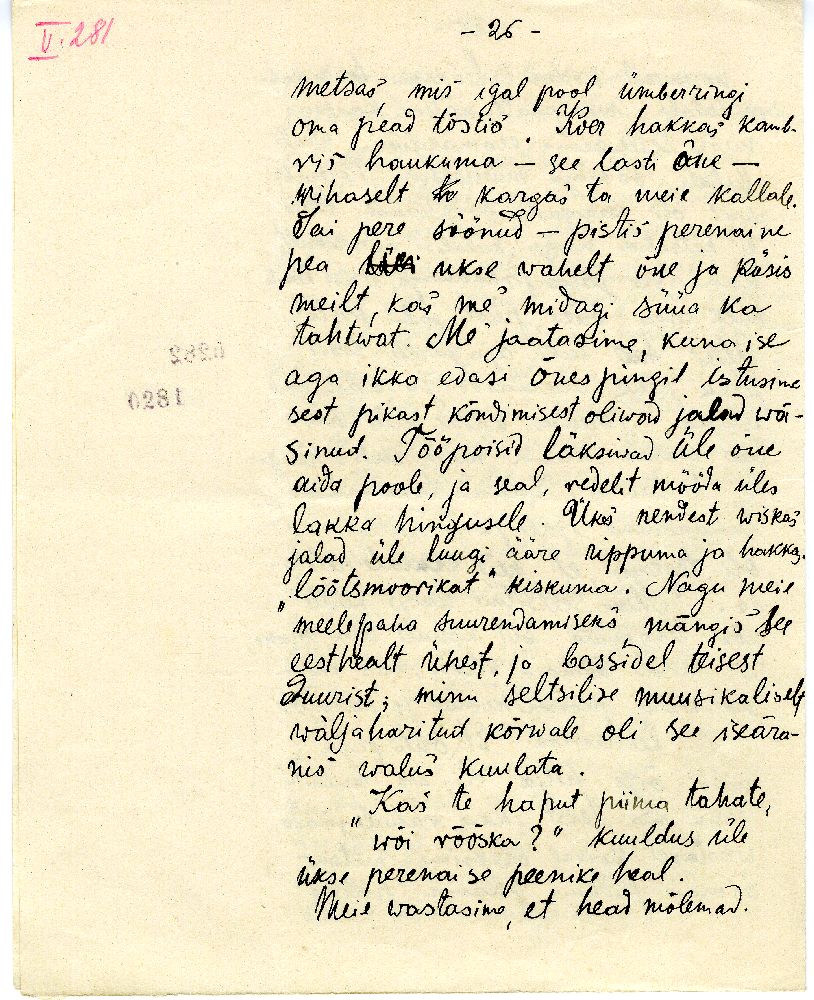 V. 281
- 26 -
metsas, mis igal pool ümberringi
oma pead tõstis. Koer hakkas kamb-
ris haukuma — see lasti õue —
wihaselt kargas ta meie kallale.
Sai pere söönud — pistis perenaine
pea ukse wahelt õue ja küsis
meilt, kas me midagi süüa ka
tahtwat. Me jaatasime, kuna ise
aga ikka edasi õues pingil istusime
sest pikast kõndimisest oliwad jalad wä-
sinud. Tööpoisid läksiwad üle õue
aida poole, ja seal, redelit mööda üles
lakka hingusele. Üks nendest wiskas
jalad üle luugi ääre rippuma ja hakkas
„lõõtsmoorikat" kiskuma. Nagu meie
meelepaha suurendamiseks, mängis see
eesthealt ühest, ja bassidel teisest
duurist; minu seltsilise muusikaliselt
wäljaharitud kõrwale oli see iseära-
nis walus kuulata.
„Kas te haput piima tahate,
wõi rõõska?" kuuldus üle
ukse perenaise peenike heal.
Meie wastasime, et head mõlemad.
0282
0281